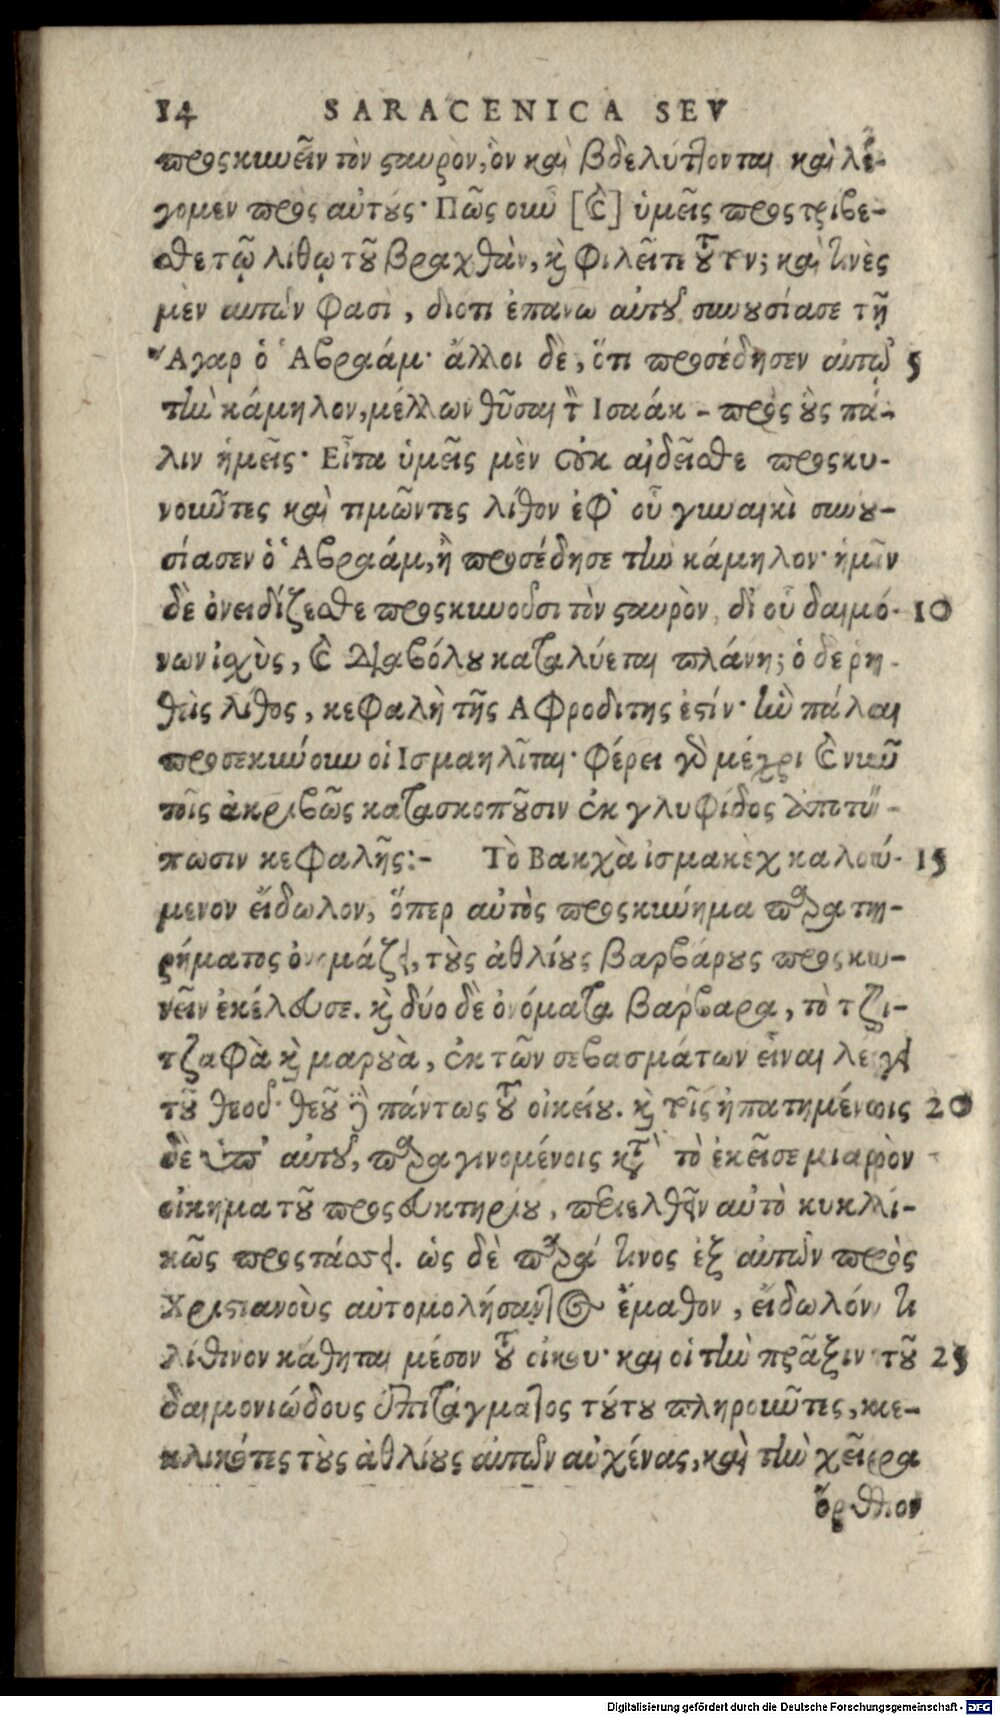 14 SARACENICA SEV
προσκυνεῖν τὸν σταυρὸν, ὃν καὶ βδελύττονται καὶ λέ-
γομεν πρὸς αὐτούς· Πῶς οὖν [καὶ] ὑμεῖς προστρίβε-
σθε τῷ λιθῳ τοῦ βραχθὰν, καὶ φιλεῖτε τοῦτον; καὶ τινὲς
μὲν αὐτῶν φασὶ, διότι ἐπανω αὐτοῦ συνουσίασε τῇ
Ἄγαρ ὁ Ἀβραάμ· ἄλλοι δὲ, ὅτι προσέδησεν αὐτῷ 5
τὴν κάμηλον, μέλλων θῦσαι τὸν Ισαάκ - πρὸς οὓς πά-
λιν ἡμεῖς· Εἶτα ὑμεῖς μὲν οὐκ αἰδεῖσθε προσκυ-
νοῦντες καὶ τιμῶντες λίθον ἐφ' οὗ γυναικὶ συνου-
σίασεν ὁ Ἀβραάμ, ἢ προσέδησε τὴν κάμηλον· ἡμῖν
δὲ ὀνειδίζεσθε προσκυνοῦσι τὸν σταυρὸν, δι' οὗ δαιμό- 10
νων ἰσχὺς, καὶ διαβόλου καταλύεται πλάνη; ὁ δὲ ῥη-
θεὶς λίθος, κεφαλὴ τῆς Αφροδιτης ἐστίν· ἣν πάλαι
προσεκύνουν οἱ Ισμαηλῖται· φέρει γὰρ μέχρι καὶ νῦν
τοῖς ἀκριβῶς κατασκοποῦσιν ἐκ γλυφίδος ἀποτύ-
πωσιν κεφαλῆς:- Τὸ Βακχὰ ἰσμακὲχ καλού- 15
μενον εἴδωλον, ὅπερ αὐτὸς προσκύνημα παρατη-
ρήματος ὀνομάζει, τοὺς ἀθλίους βαρβάρους προσκυ-
νεῖν ἐκέλευσε. καὶ δύο δὲ ὀνόματα βάρβαρα, τὸ τζι-
τζαφὰ καὶ μαρουὰ, ἐκ τῶν σεβασμάτων εἶναι λέγει
τοῦ θεοῦ· θεοῦ δὲ πάντως τοῦ οἰκείου. καὶ τοῖς ἠπατημένοις 20
δὲ ὑπ' αὐτοῦ, παραγινομένοις κατὰ τὸ ἐκεῖσε μιαρὸν
οἴκημα τοῦ προσευκτηρίου, περιελθεῖν αὐτὸ κυκλι-
κῶς προστάσσει. ὡς δὲ παρά τινος ἐξ αὐτῶν πρὸς
Χριστιανοὺς αὐτομολήσαντος ἔμαθον, εἴδωλόν τι
λίθινον κάθηται μέσον τοῦ οἴκου· καὶ οἱ τὴν πρᾶξιν τοῦ 25
δαιμονιώδους ἐπιτάγματος τούτου πληροῦντες, κε-
κλικότες τοὺς ἀθλίους αὐτῶν αὐχένας, καὶ τὴν χεῖρα
ὄρθιον
Digitalisierung gefördert durch die Deutsche Forschungsgemeinschaft - DFG